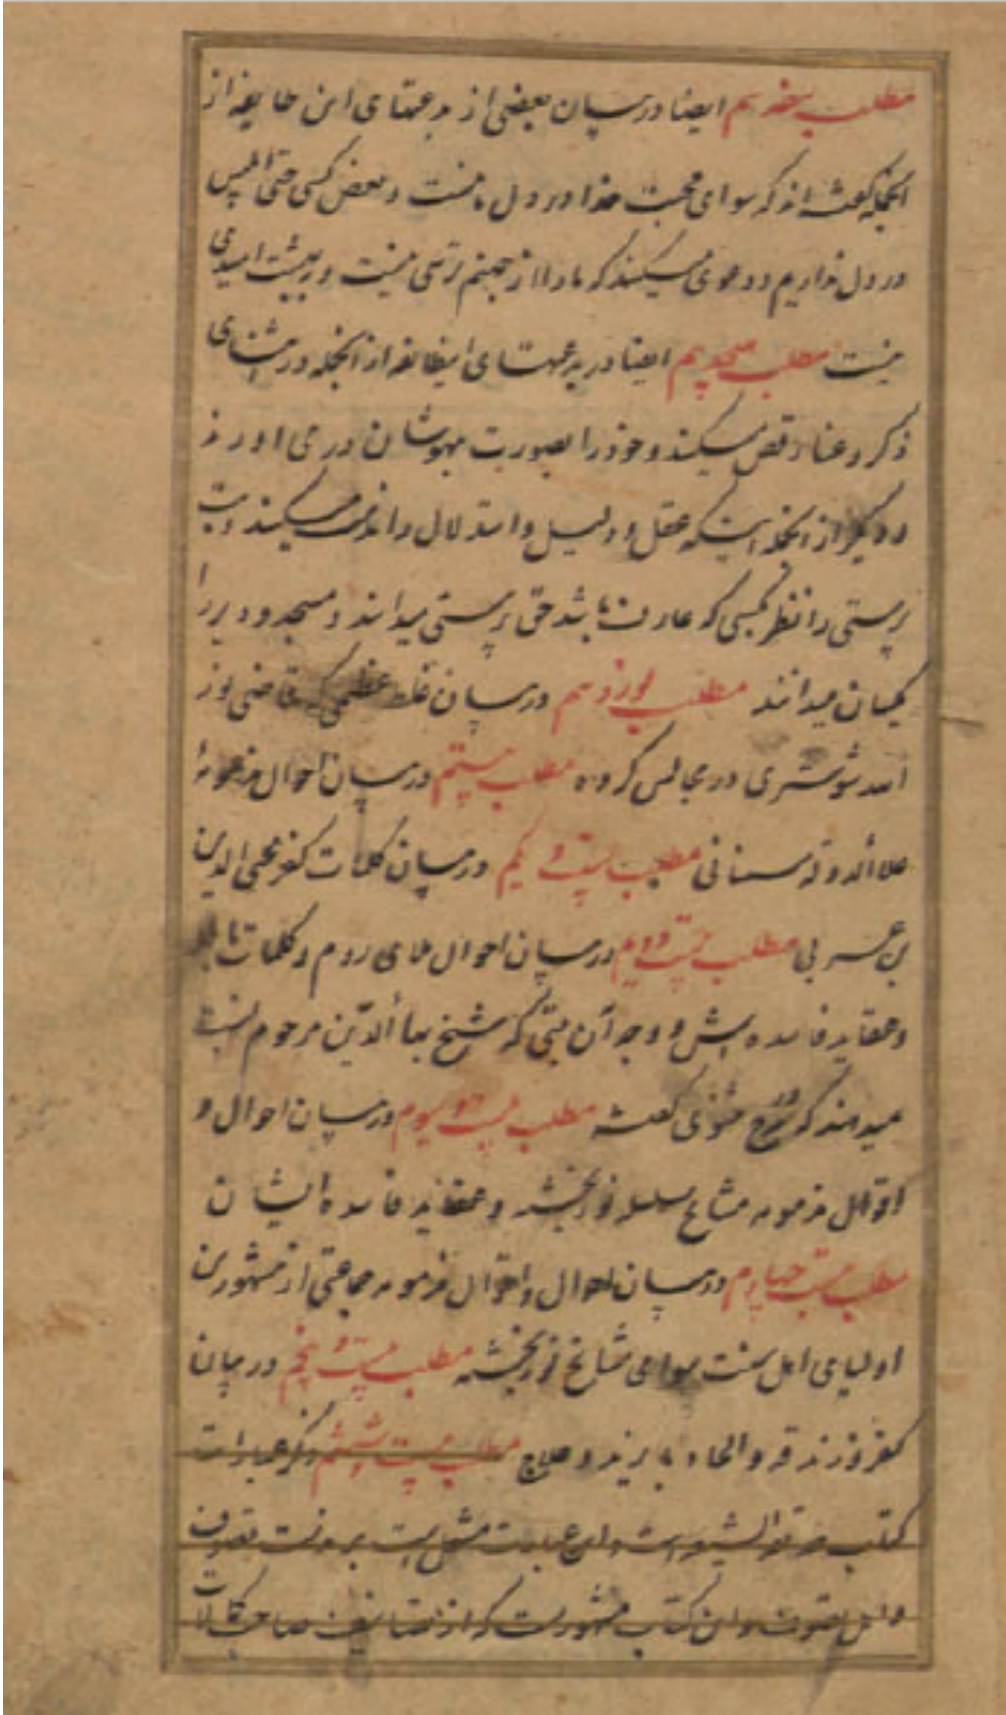 مطلب هفدهم ایضا در بیان بعضی از بدعتهای این طایفه از
انجمله گفته اند که سوای محبت خدا در دل ما نیست و بغض کسی حتی ابلیس
در دل نداریم و دعوی میکنند که ما را از جهنم ترسی نیست و ببهشت امیدی
نیست مطلب هیجدهم ایضا در بدعتهای اینطائفه از انجمله در اثنای
ذکر و غنا رقص میکنند و خود را بصورت بیهوشان در می اورند
و دیگر از انجمله اینکه عقل و دلیل و استدلال را مذمت میکنند و بت
پرستی را نظر بکسی که عارف باشد حق پرستی میدانند و مسجد و دیر را
یکسان میدانند مطلب نوزدهم در بیان غلط عظیمی که قاضی نور
الله شوشتری در مجالس کرده مطلب بیستم در بیان احوال
علاء الدوله سمنانی مطلب بیست و یکم در بیان کلمات کفر محیی الدین
بن عربی مطلب بیست و دویم در بیان احوال ملای روم و کلمات
و عقاید فاسده اش و وجه آن بیتی که شیخ بهاء الدین مرحوم نسبت
میدهند که در مدح مثنوی گفته مطلب بیست و سیوم در بیان احوال و
اقوال مذمومه مشایخ سلسله نوربخشیه و عقاید فاسده ایشان
مطلب بیست و چهارم در بیان احوال و اقوال مذمومه جماعتی از مشهورین
اولیای اهل سنت سوای مشایخ نوربخشیه مطلب بیست و پنجم در بیان
کفر و زندقه و الحاد با یزید و حلاج مطلب بیست و ششم ذکر عبارات
کتاب حدیقة الشیعه است و این عبارت مشتمل است بر مذمت تصوف
و اهل تصوف و این کتاب مشهور است که از تصانیف صاحب کمالات